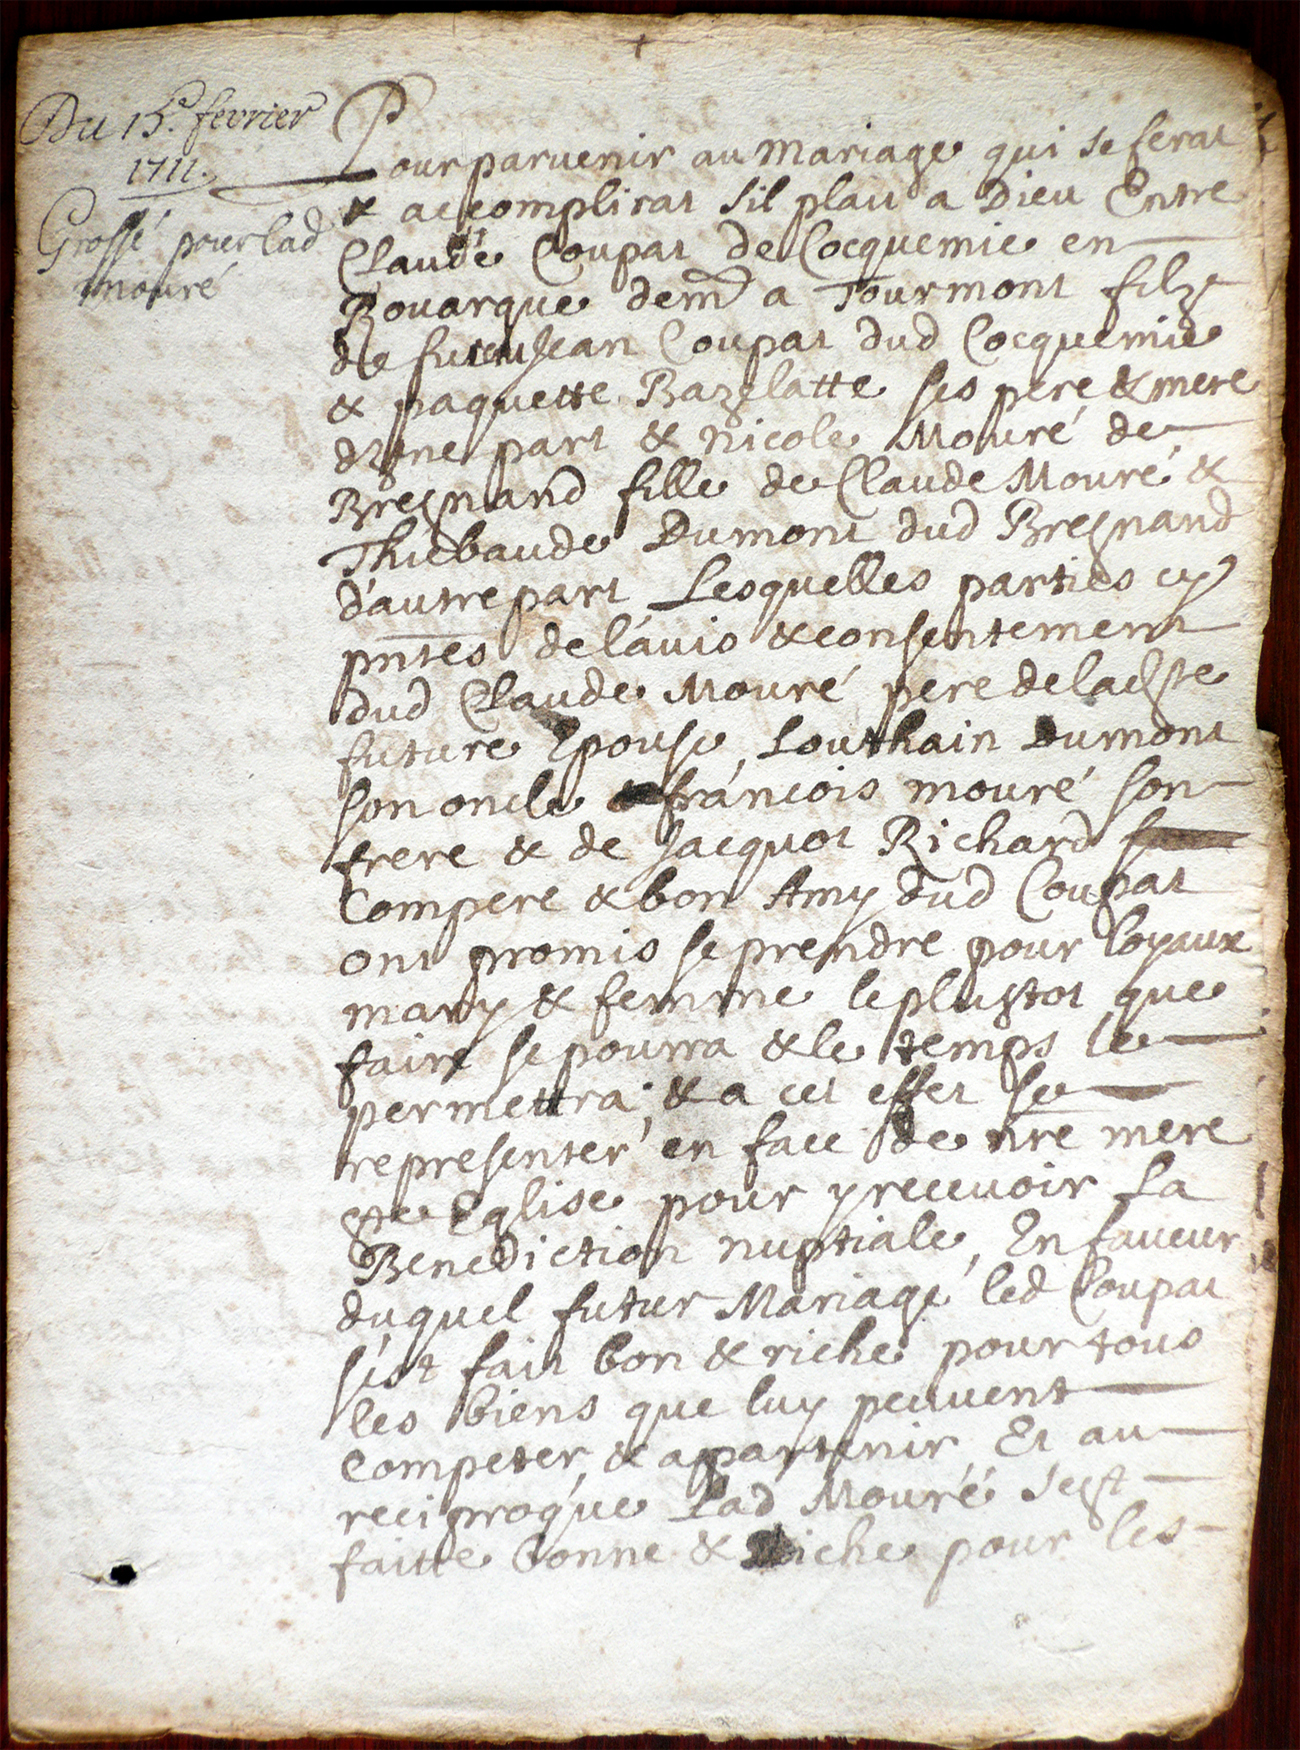 Du 15.e fevrier
1711.
Grossé pour lad
mouré
Pour parvenir au Mariage qui se ferat
& accomplirat sil plait a Dieu Entre
Claude Coupat de Cocquemie en
Rouarque demt a Tourmont filz
de Jean Coupat dud Cocquemie
& paquette Bazelatte ses pere & mere
d'une part & nicole Mouré de
Bregnand fille de Claude Mouré &
Thiebaude Dumont dud Bregnand
d'autre part Lesquelles parties cy
pntes de l'avis & consentement
dud Claude Mouré pere de lad
future Epouse, Louthain Dumont
son oncle françois mouré son
frere & de Jacquot Richard
Compere & bon Amy dud Coupat
ont promis se prendre pour loyaux
mary & femme le plustot que
faire se pourra & le temps le
permettra, & a cet effet se
representer en face de nre mere
ste Eglise pour y recevoir La
Benediction nuptiale, En faveur
duquel futur Mariage led Coupat
s'est fait bon & riche pour tous
les biens que luy peuvent
Competer, & appartenir, Et au
reciproque Lad Mouré s'est
faitte bonne & Riche pour les